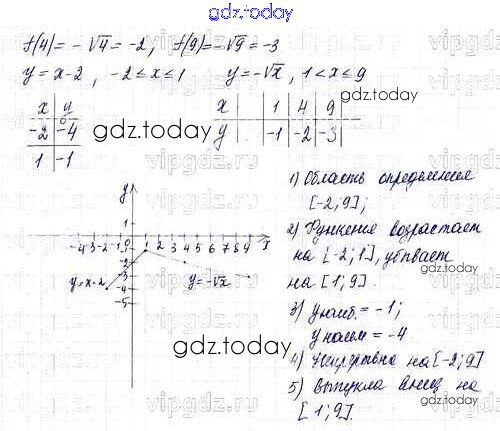 gdz.today
f(4)=-√4=-2; f(9)=-√9=-3
y=x-2, -2≤x≤1 y=-√x, 1<x≤9
x y
-2 -4
1 -1
x 1 4 9
y -1 -2 -3
gdz.today
gdz.today
1) Область определения
[-2;9];
2) Функция возрастает
на [-2;1], убывает
на [1;9].
3) y наиб.=-1;
y наим=-4
4) Непрерывна на [-2;9]
5) Выпукла вниз на
[1;9].
y
1
-4 -3 -2 -1 0 1 2 3 4 5 6 7 8 9 x
-1
-2
-3
-4
-5
y=x-2
y=-√x
gdz.today
gdz.today
vipgdz.ru